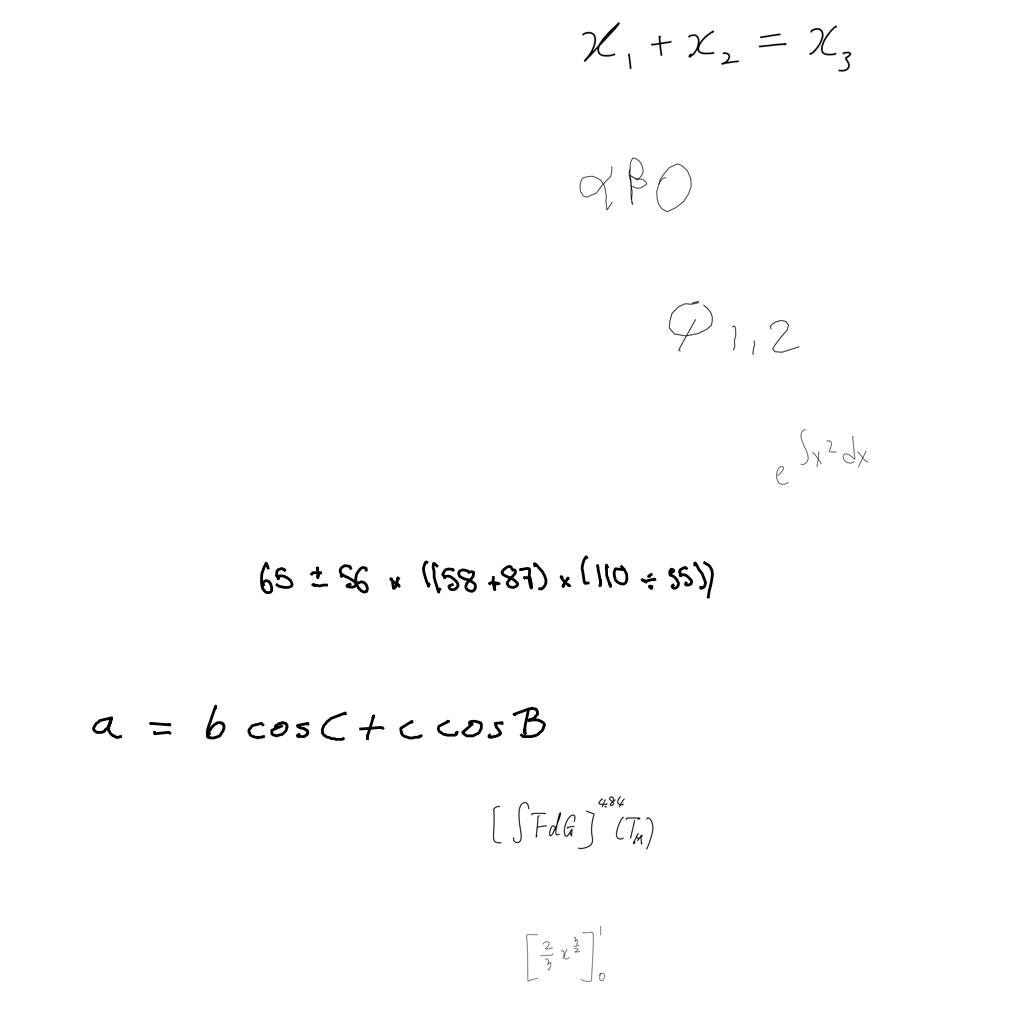 x₁ + x₂ = x₃
αβ0
φ1,2
e^{∫x² dx}
65 ± 56 × ((58 + 87) × (110 ÷ 55))
a = b cos C + c cos B
[∫FdG]^{484}(T_M)
[2/3 x^{3/2}]₀¹